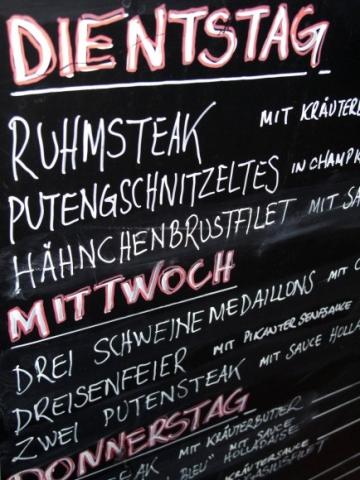 DIENTSTAG
RUHMSTEAK MIT KRÄUTERB
PUTENGSCHNITZELTES IN CHAMPK
HÄHNCHENBRUSTFILET MIT SA
MITTWOCH
DREI SCHWEINEMEDAILLONS MIT C
DREISENFEIER MIT PIKANTER SENFSAUCE
ZWEI PUTENSTEAK MIT SAUCE HOLLA
DONNERSTAG
EAK MIT KRÄUTERBUTTER
BLEU" MIT SAUCE HOLLADAISE
KRÄUTERSAUCE